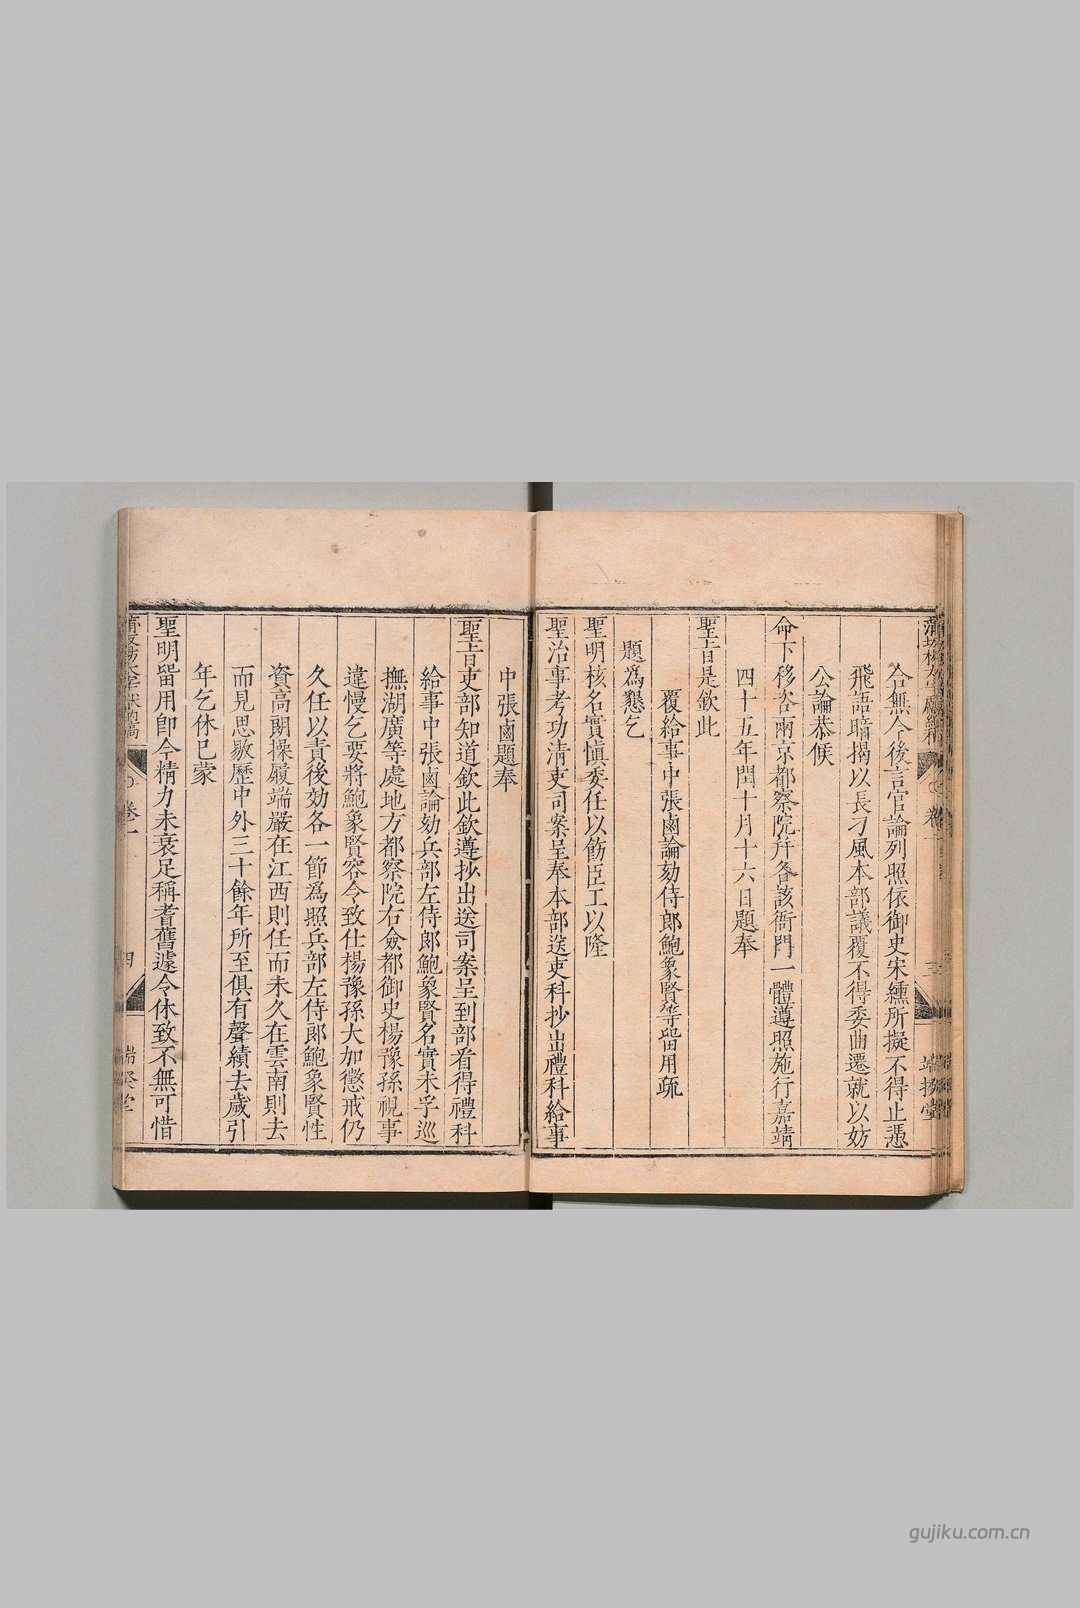 合無今後言官論列照依御史宋纁所擬不得止憑
飛語暗揭以長刁風本部議覆不得委曲遷就以妨
公論恭候
命下移咨兩京都察院并各該衙門一體遵照施行嘉靖
四十五年閏十月十六日題奉
聖旨是欽此
覆給事中張鹵論劾侍郎鮑象賢等留用疏
題爲懇乞
聖明核名實慎委任以飭臣工以隆
聖治事考功清吏司案呈奉本部送吏科抄出禮科給事
中張鹵題奉
聖旨吏部知道欽此欽遵抄出送司案呈到部看得禮科
給事中張鹵論劾兵部左侍郎鮑象賢名實未孚巡
撫湖廣等處地方都察院右僉都御史楊豫孫視事
違慢乞要將鮑象賢容令致仕楊豫孫大加懲戒仍
久任以責後効各一節爲照兵部左侍郎鮑象賢性
資高朗操履端嚴在江西則任而未久在雲南則去
而見思敭歷中外三十餘年所至俱有聲績去歲引
年乞休已蒙
聖明留用即今精力未衰足稱耆舊遽令休致不無可惜
卷一
四
gujiku.com.cn